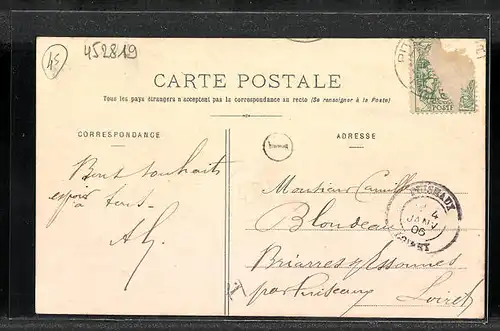 45
452819
CARTE POSTALE
Tous les pays étrangers n'acceptent pas la correspondance au recto (Se renseigner à la Poste)
CORRESPONDANCE
ADRESSE
Bons souhaits
espoir
à tous
Monsieur Camille
Blondeau
Briarres s/Essonnes
par Puiseaux
Loiret
PUISEAUX
4
JANV
06
LOIRET
POSTE